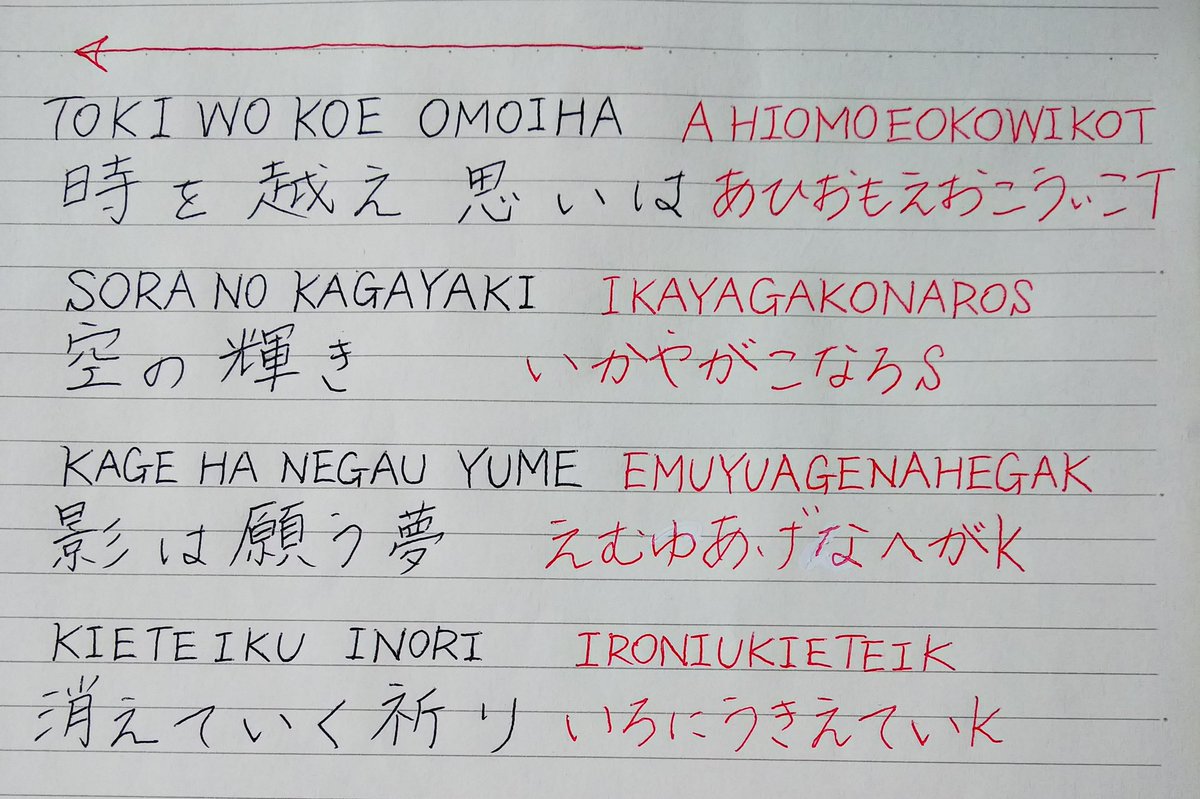 TOKI WO KOE OMOIHA AHIOMOEOKOWIKOT
時を越え 思いは あひおもえおこうぃこT
SORA NO KAGAYAKI IKAYAGAKONAROS
空の輝き いかやがこなろS
KAGE HA NEGAU YUME EMUYUAGENAHEGAK
影は願う夢 えむゆあげなへがK
KIETEIKU INORI IRONIUKIETEIK
消えていく祈り いろにうきえていK